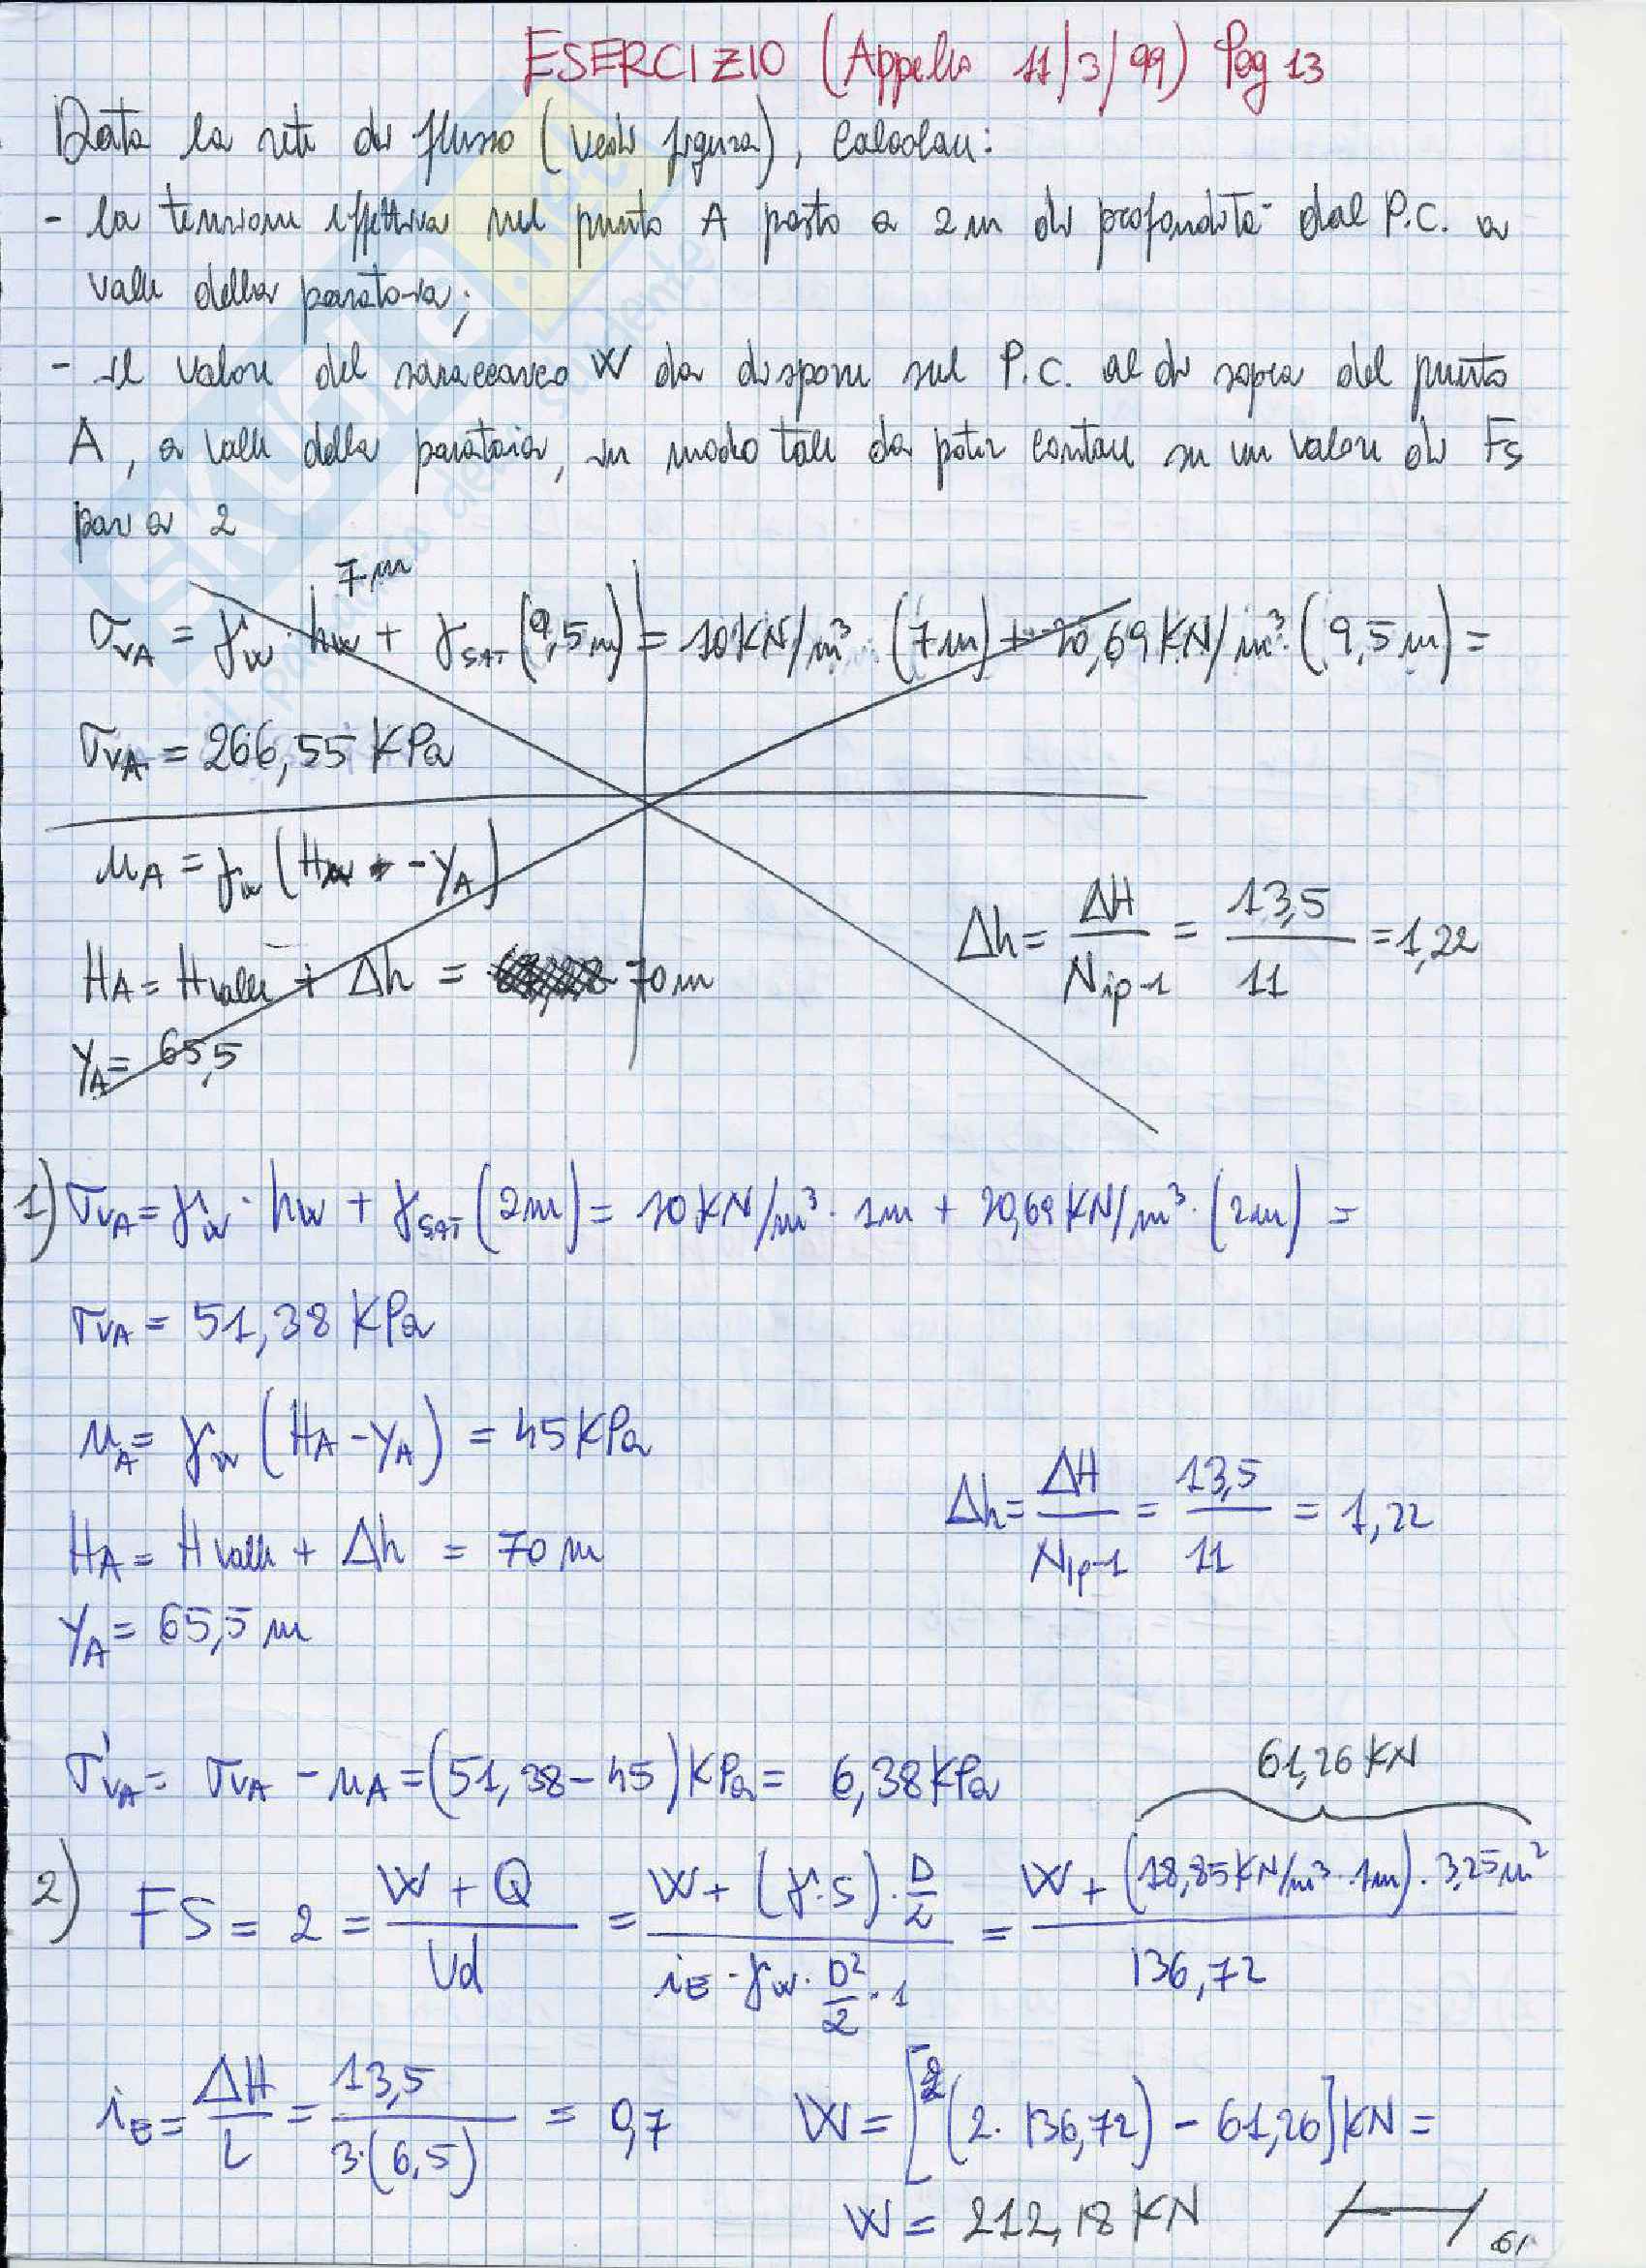 ESERCIZIO (Appello 11/3/99) Pag 13
Data la rete di flusso (vedi figura), Calcolare:
- la tensione effettiva nel punto A posto a 2 m di profondità dal P.C. a
valle della paratoia;
- il valore del sovraccarico W da disporre sul P.C. al di sopra del punto
A, a valle della paratoia, in modo tale da poter contare su un valore di FS
pari a 2
7m
σvA = γw · hw + γSAT (9,5m) = 10KN/m³ · (7m) + 20,69 KN/m³ · (9,5m) =
σvA = 266,55 KPa
uA = γw (HA - yA)
HA = Hvalle + Δh = 70m
Δh = ΔH / Nip-1 = 13,5 / 11 = 1,22
yA = 65,5
1) σvA = γw · hw + γSAT (2m) = 10KN/m³ · 1m + 20,69KN/m³ · (2m) =
σvA = 51,38 KPa
uA = γw (HA - yA) = 45KPa
HA = Hvalle + Δh = 70m
Δh = ΔH / Nip-1 = 13,5 / 11 = 1,22
yA = 65,5 m
61,26 KN
σ'vA = σvA - uA = (51,38-45)KPa = 6,38KPa
2) FS = 2 = W + Q / Ud = W + (γ'·S) · D/2 / iE · γw · D²/2 · 1 = W + (18,85KN/m³ · 1m) · 3,25m² / 136,72
iE = ΔH / L = 13,5 / 3·(6,5) = 0,7
W = [(2 · 136,72) - 61,26]KN =
W = 212,18 KN
61